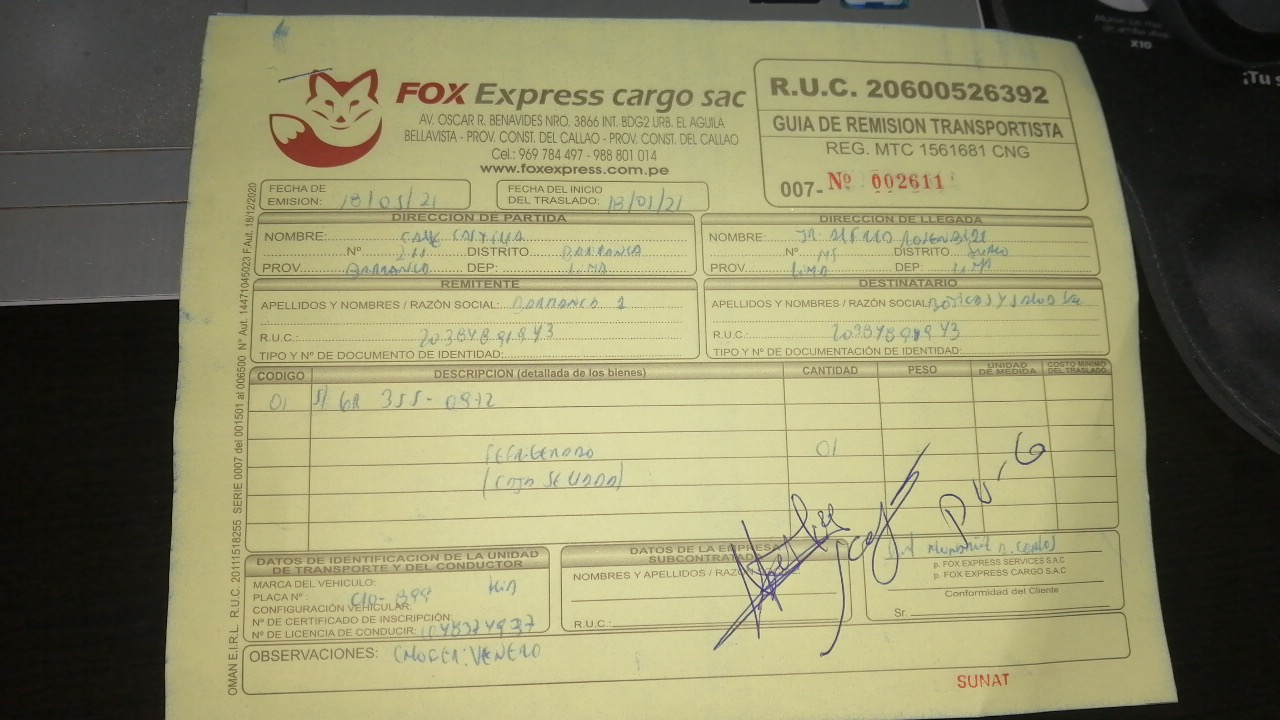 FOX Express cargo sac
AV. OSCAR R. BENAVIDES NRO. 3866 INT. BDG2 URB. EL AGUILA
BELLAVISTA - PROV. CONST. DEL CALLAO - PROV. CONST. DEL CALLAO
Cel.: 969 784 497 - 988 801 014
www.foxexpress.com.pe
R.U.C. 20600526392
GUIA DE REMISION TRANSPORTISTA
REG. MTC 1561681 CNG
007- Nº 002611
FECHA DE EMISION: 18/05/21
FECHA DEL INICIO DEL TRASLADO:
DIRECCION DE PARTIDA
NOMBRE: CALLE
Nº DISTRITO BARRANCA
PROV. BARRANCA DEP: LIMA
DIRECCION DE LLEGADA
NOMBRE: JR ALFREDO
Nº DISTRITO SURCO
PROV LIMA DEP: LIMA
REMITENTE
APELLIDOS Y NOMBRES / RAZÓN SOCIAL: BARRANCA 1
R.U.C.:
TIPO Y Nº DE DOCUMENTO DE IDENTIDAD:
DESTINATARIO
APELLIDOS Y NOMBRES / RAZÓN SOCIAL: BOTICAS Y SALUD SAC
R.U.C.:
TIPO Y Nº DE DOCUMENTACIÓN DE IDENTIDAD:
CODIGO DESCRIPCION (detallada de los bienes) CANTIDAD PESO UNIDAD DE MEDIDA COSTO MINIMO DEL TRASLADO
01 S/ GR 355-0972
01
(CAJA SELLADA)
DATOS DE IDENTIFICACION DE LA UNIDAD
DE TRANSPORTE Y DEL CONDUCTOR
MARCA DEL VEHICULO: KIA
PLACA Nº :
CONFIGURACIÓN VEHICULAR:
Nº DE CERTIFICADO DE INSCRIPCIÓN
Nº DE LICENCIA DE CONDUCIR:
DATOS DE LA EMPRESA
SUBCONTRATADA
NOMBRES Y APELLIDOS / RAZÓN
R.U.C.:
p. FOX EXPRESS SERVICES S.A.C
p. FOX EXPRESS CARGO S.A.C
Conformidad del Cliente
Sr.
OBSERVACIONES: CHOFER: VENERO
SUNAT
OMAN E.I.R.L. R.U.C. 20111518255 SERIE 0007 del 001501 al 006500 Nº Aut. 14471045023 F.Aut. 18/12/2020
X10
¡Tu